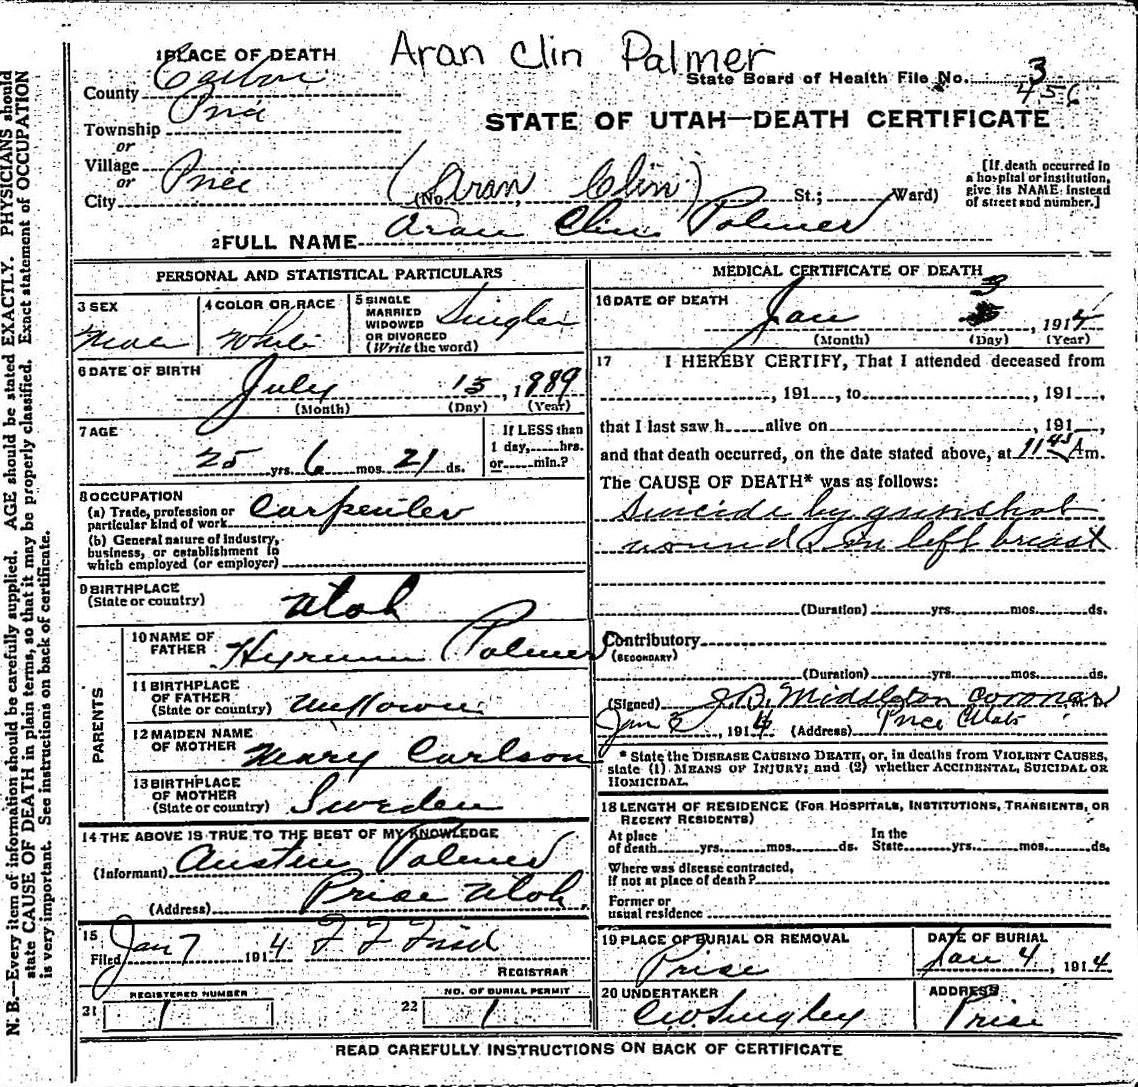 Aran Clin Palmer
1 PLACE OF DEATH
State Board of Health File No. 3
County Carbon
456
Township Price
STATE OF UTAH—DEATH CERTIFICATE
or
Village
or
City Price
(No. Aran Clin) St.; Ward)
[If death occurred in
a hospital or institution,
give its NAME instead
of street and number.]
2 FULL NAME Aran Clin Palmer
PERSONAL AND STATISTICAL PARTICULARS
3 SEX
Male
4 COLOR OR RACE
White
5 SINGLE
MARRIED
WIDOWED
OR DIVORCED
(Write the word)
Single
6 DATE OF BIRTH
July 13, 1889
(Month) (Day) (Year)
7 AGE
25 yrs. 6 mos. 21 ds.
If LESS than
1 day, hrs.
or min.?
8 OCCUPATION
(a) Trade, profession or
particular kind of work Carpenter
(b) General nature of industry,
business, or establishment in
which employed (or employer)
9 BIRTHPLACE
(State or country) Utah
PARENTS
10 NAME OF
FATHER Hyrum Palmer
11 BIRTHPLACE
OF FATHER
(State or country)
12 MAIDEN NAME
OF MOTHER Mary Carlson
13 BIRTHPLACE
OF MOTHER
(State or country) Sweden
14 THE ABOVE IS TRUE TO THE BEST OF MY KNOWLEDGE
(Informant) Austin Palmer
(Address) Price Utah
15
Filed Jan 7 1914
REGISTRAR
REGISTERED NUMBER
21 1
NO. OF BURIAL PERMIT
22 1
MEDICAL CERTIFICATE OF DEATH
16 DATE OF DEATH
Jan 3, 1914
(Month) (Day) (Year)
17 I HEREBY CERTIFY, That I attended deceased from
, 191 , to , 191 ,
that I last saw h alive on , 191 ,
and that death occurred, on the date stated above, at 11 45 A m.
The CAUSE OF DEATH* was as follows:
Suicide by gunshot
wound in left breast
(Duration) yrs. mos. ds.
Contributory
(SECONDARY)
(Duration) yrs. mos. ds.
(Signed) J.B. Middleton Coronar M. D.
Jan 3, 1914 (Address) Price Utah
* State the DISEASE CAUSING DEATH, or, in deaths from VIOLENT CAUSES,
state (1) MEANS OF INJURY; and (2) whether ACCIDENTAL, SUICIDAL OR
HOMICIDAL.
18 LENGTH OF RESIDENCE (FOR HOSPITALS, INSTITUTIONS, TRANSIENTS, OR
RECENT RESIDENTS)
At place
of death yrs. mos. ds.
In the
State yrs. mos. ds.
Where was disease contracted,
if not at place of death?
Former or
usual residence
19 PLACE OF BURIAL OR REMOVAL
Price
DATE OF BURIAL
Jan 4, 1914
20 UNDERTAKER
ADDRESS
Price
READ CAREFULLY INSTRUCTIONS ON BACK OF CERTIFICATE
N. B.—Every item of information should be carefully supplied. AGE should be stated EXACTLY. PHYSICIANS should
state CAUSE OF DEATH in plain terms, so that it may be properly classified. Exact statement of OCCUPATION
is very important. See instructions on back of certificate.